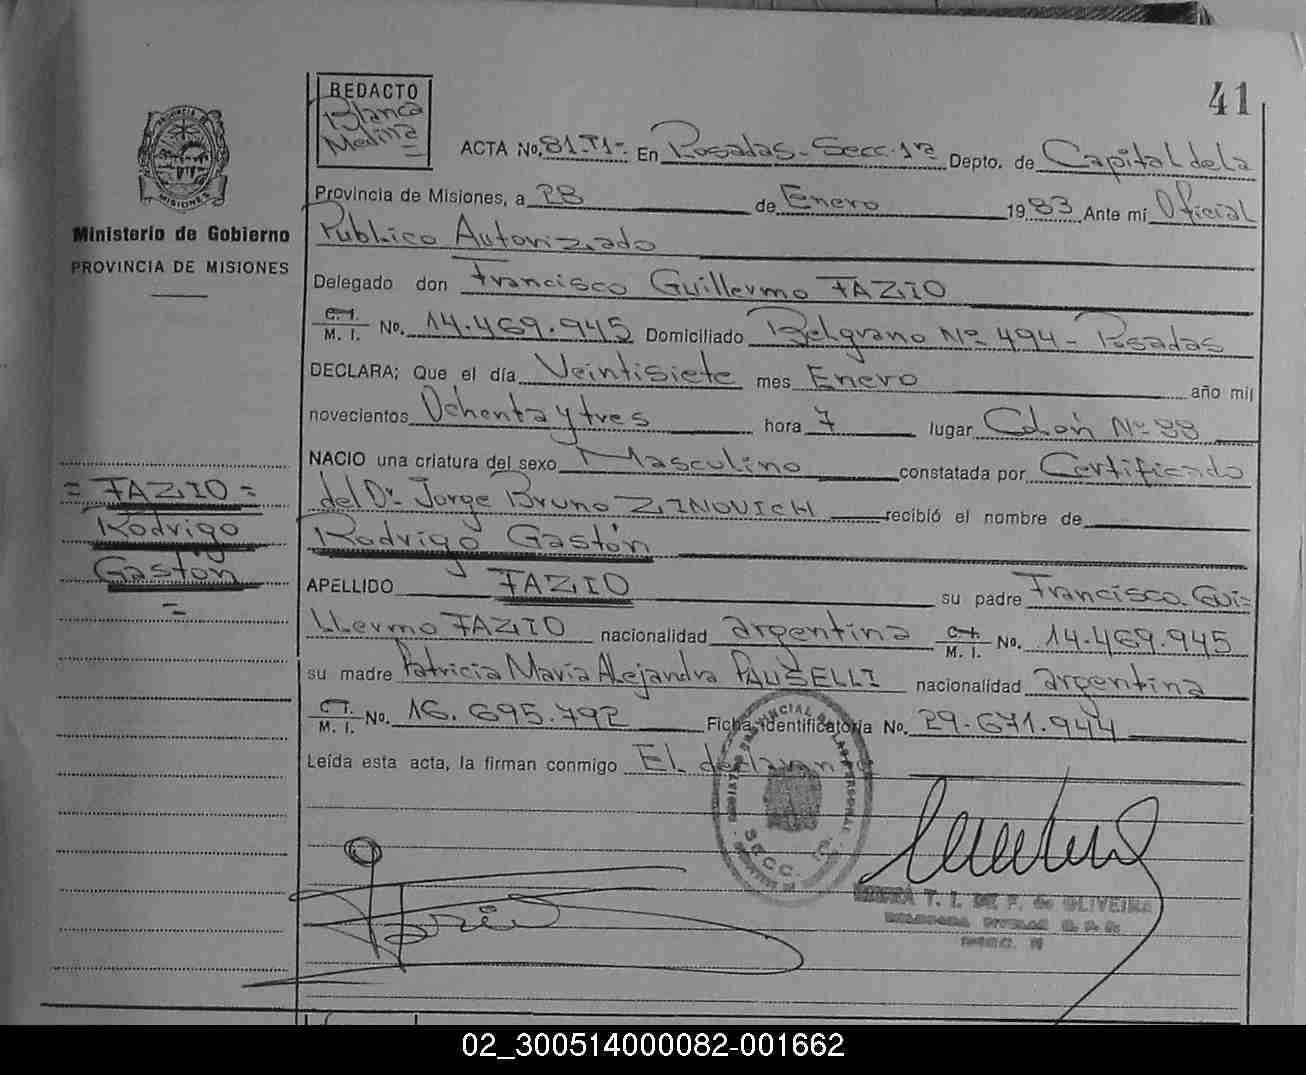 41
REDACTO
Blanca
Medina
PROVINCIA DE
MISIONES
Ministerio de Gobierno
PROVINCIA DE MISIONES
ACTA No. 81.T1- En Posadas - Secc. 1ª Depto. de Capital de la
Provincia de Misiones, a 28 de Enero 1983 Ante mí Oficial
Público Autorizado
Delegado don Francisco Guillermo FAZIO
C.I. M. I. No. 14.469.945 Domiciliado Belgrano Nº 494 - Posadas
DECLARA; Que el día Veintisiete mes Enero año mil
novecientos Ochenta y tres hora 7 lugar Colón Nº 88
NACIO una criatura del sexo Masculino constatada por Certificado
del Dr. Jorge Bruno ZINOVICH recibió el nombre de
Rodrigo Gastón
APELLIDO FAZIO su padre Francisco Gui=
llermo FAZIO nacionalidad argentina C.I. M. I. No. 14.469.945
su madre Patricia María Alejandra PAUSELLI nacionalidad argentina
C.I. M. I. No. 16.695.792 Ficha identificatoria No. 29.671.944
Leída esta acta, la firman conmigo El declarante
= FAZIO =
Rodrigo
Gastón
=
SECC.
T. I. DE F. de OLIVEIRA
02_300514000082-001662